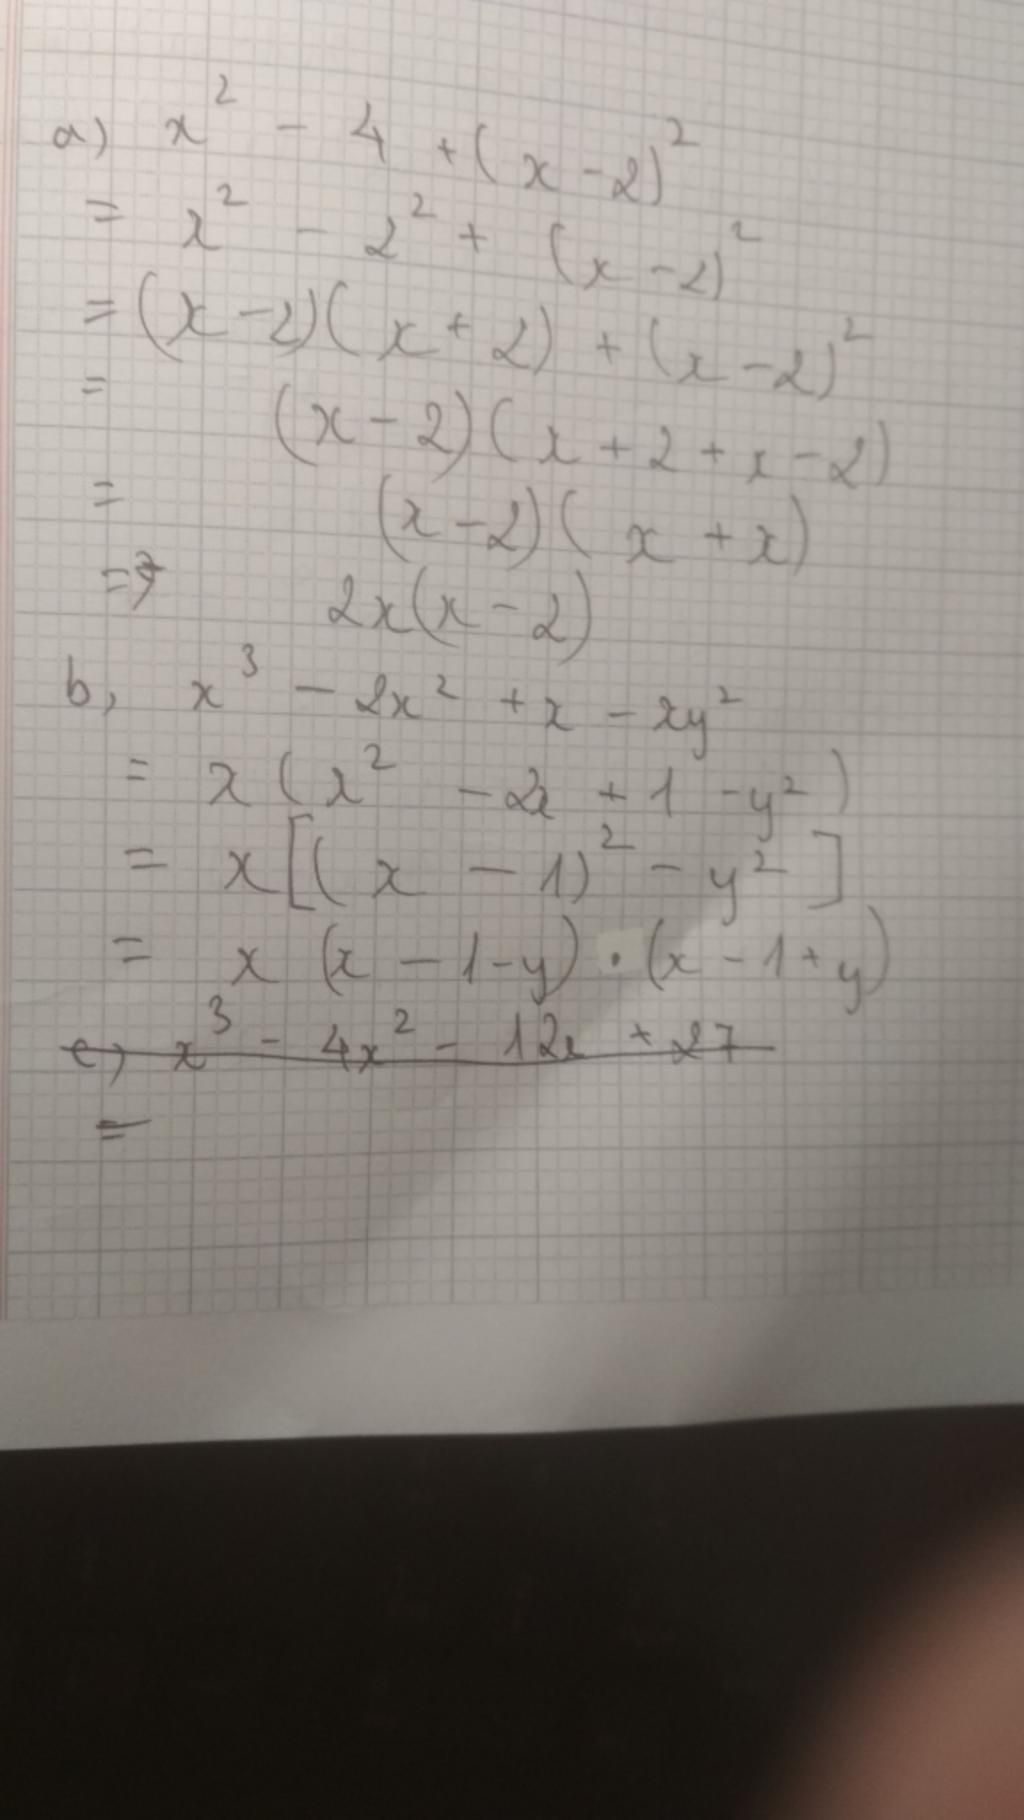 a) x² - 4 + (x - 2)²
= x² - 2² + (x - 2)²
= (x - 2)(x + 2) + (x - 2)²
= (x - 2)(x + 2 + x - 2)
= (x - 2)(x + x)
= 2x(x - 2)
b, x³ - 2x² + x - xy²
= x(x² - 2x + 1 - y²)
= x[(x - 1)² - y²]
= x (x - 1 - y) . (x - 1 + y)
c, x³ - 4x² - 12x + 27
=